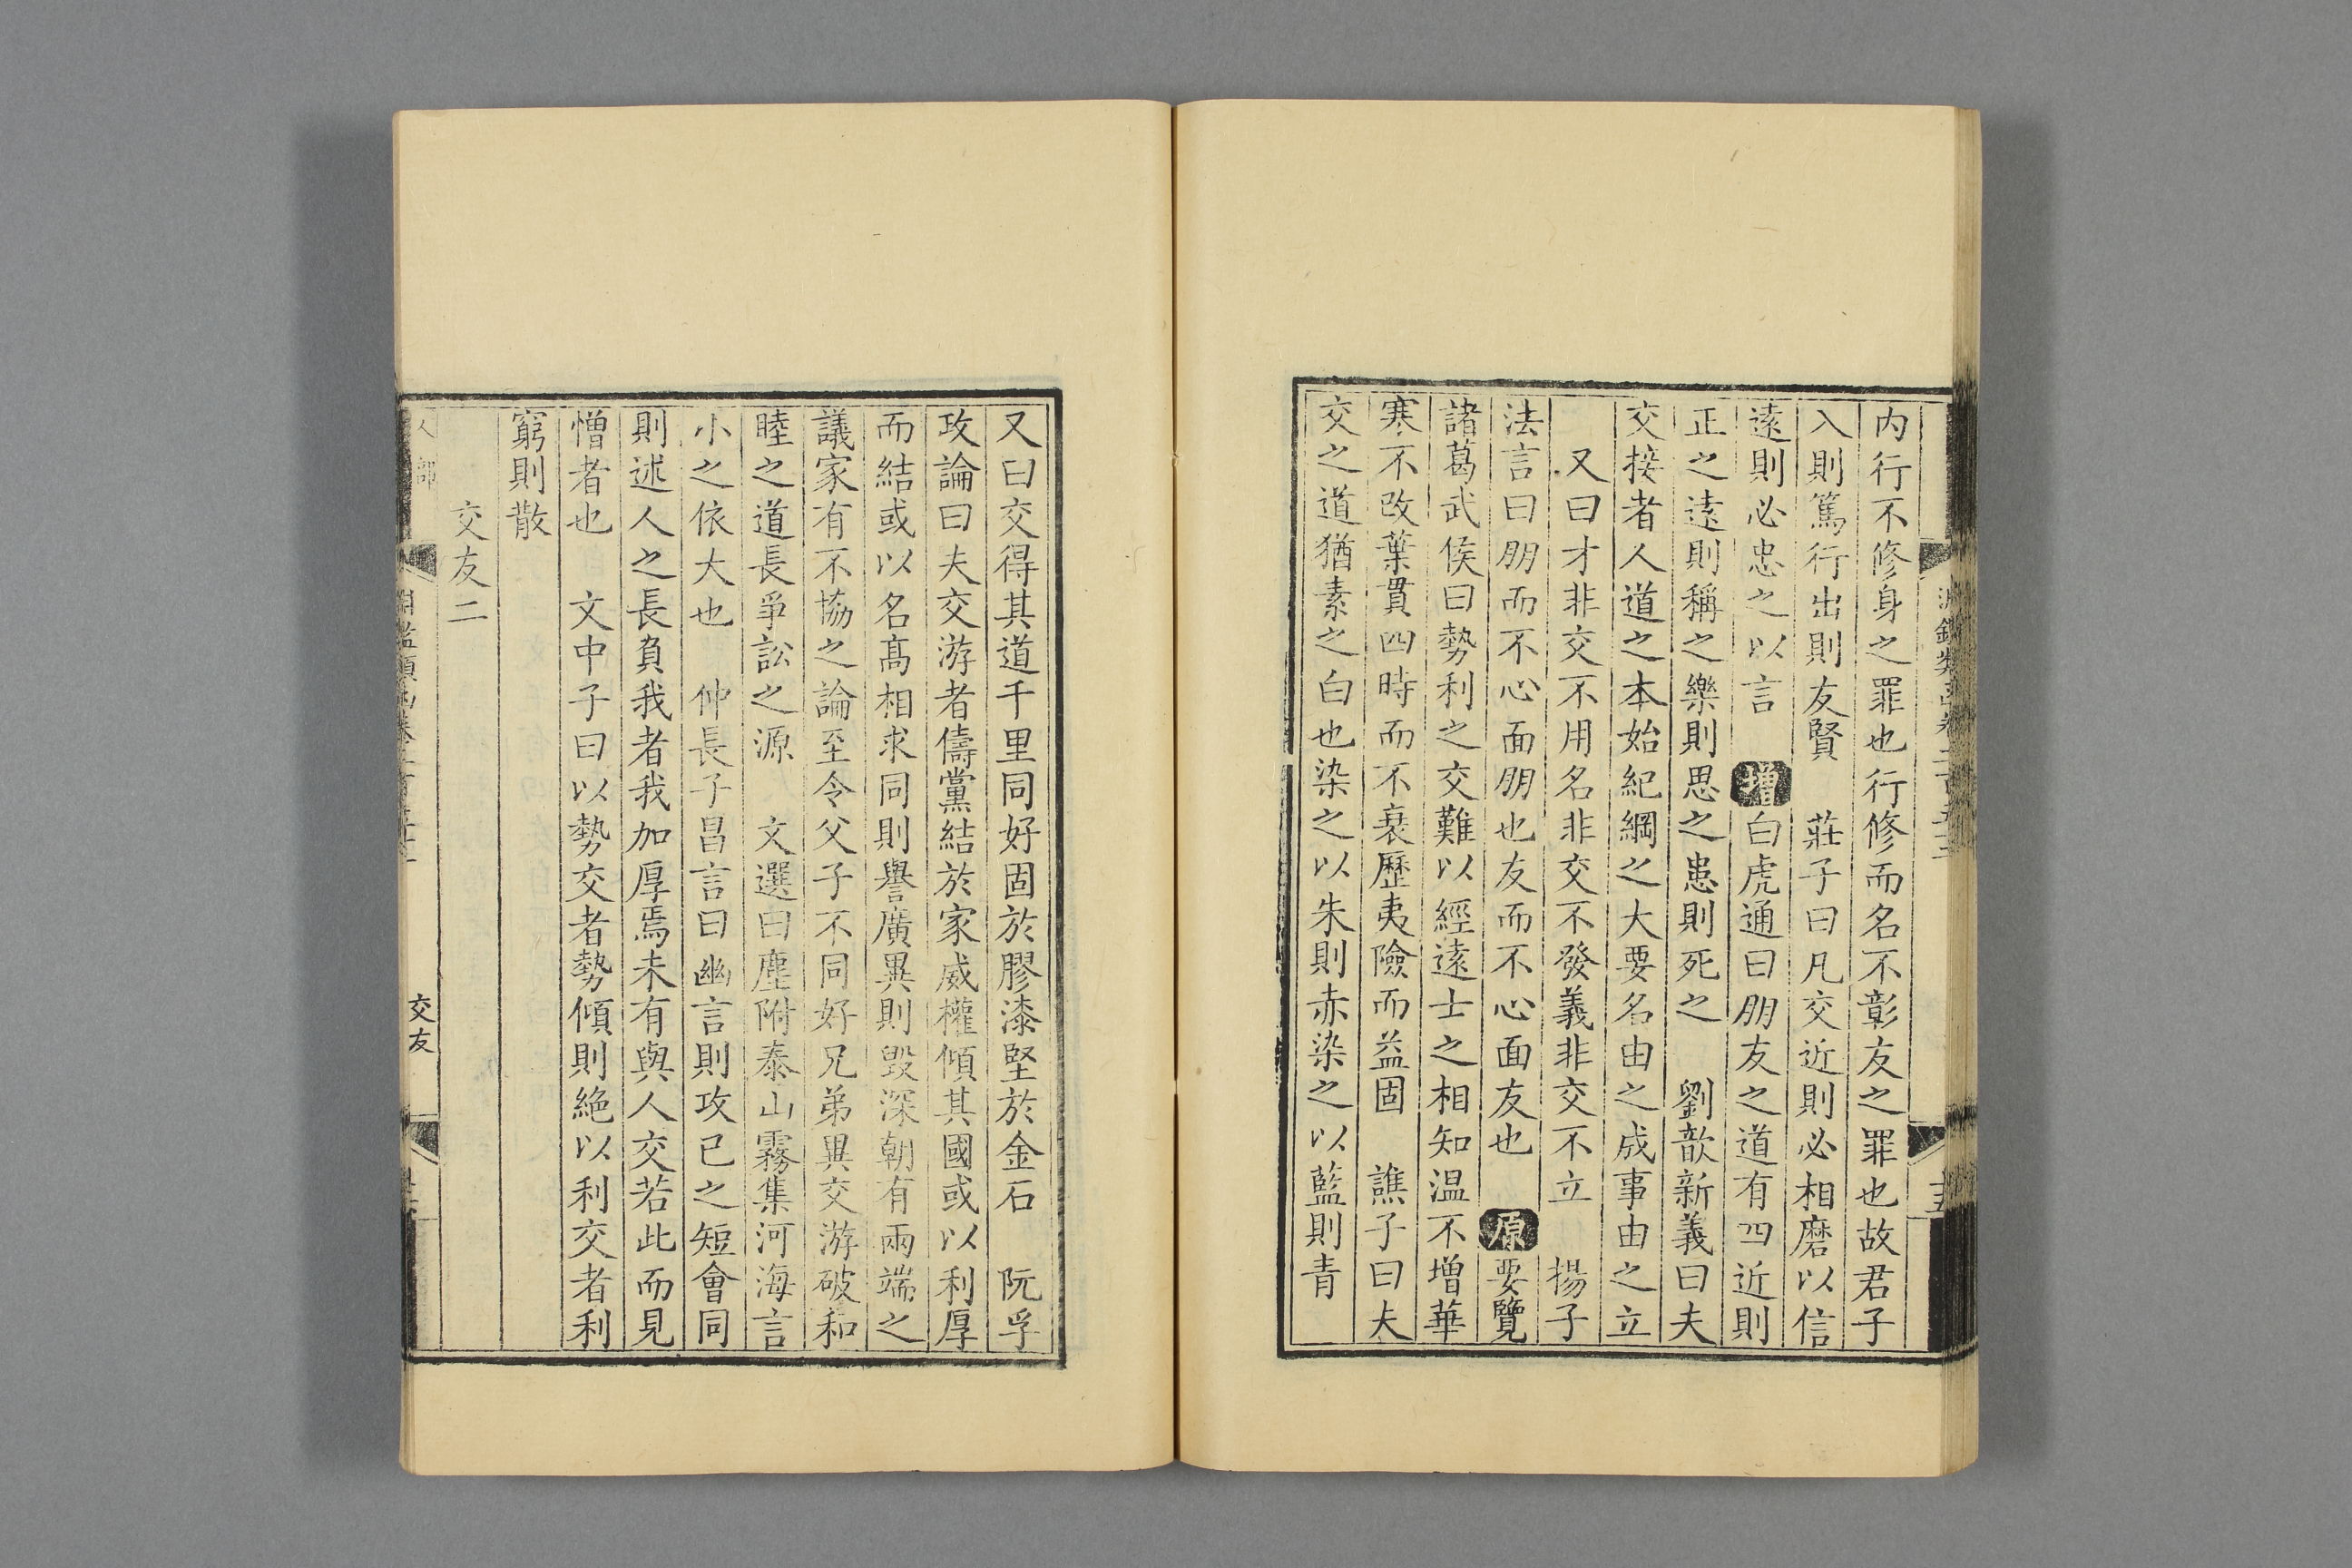 內行不修身之罪也行修而名不彰友之罪也故君子
入則篤行出則友賢　莊子曰凡交近則必相磨以信
遠則必忠之以言　增白虎通曰朋友之道有四近則
正之遠則稱之樂則思之患則死之　劉歆新義曰夫
交接者人道之本始紀綱之大要名由之成事由之立
又曰才非交不用名非交不發義非交不立　揚子
法言曰朋而不心面朋也友而不心面友也　原要覽
諸葛武侯曰勢利之交難以經遠士之相知温不增華
寒不改葉貫四時而不衰歷夷險而益固　譙子曰夫
交之道猶素之白也染之以朱則赤染之以藍則青
又曰交得其道千里同好固於膠漆堅於金石　阮孚
政論曰夫交游者儔黨結於家威權傾其國或以利厚
而結或以名高相求同則譽廣異則毁深朝有兩端之
議家有不協之論至令父子不同好兄弟異交游破和
睦之道長爭訟之源　文選曰塵附泰山霧集河海言
小之依大也　仲長子昌言曰幽言則攻已之短會同
則述人之長負我者我加厚焉未有與人交若此而見
憎者也　文中子曰以勢交者勢傾則絶以利交者利
窮則散
交友二
人部
交友